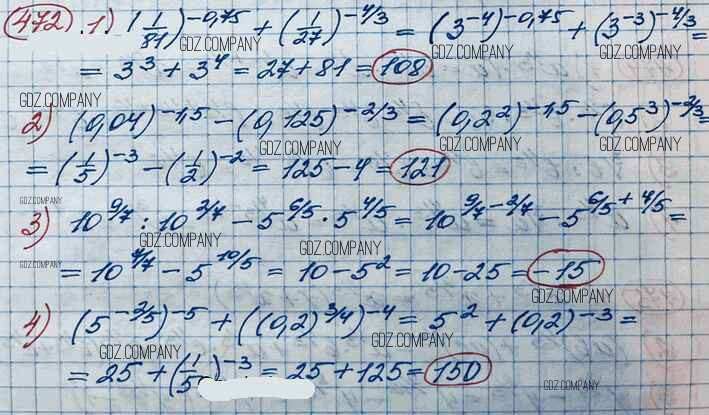 472. 1) (1/81)^-0,75 + (1/27)^-4/3 = (3^-4)^-0,75 + (3^-3)^-4/3 =
GDZ.COMPANY GDZ.COMPANY GDZ.COMPANY
= 3^3 + 3^4 = 27 + 81 = 108
GDZ.COMPANY GDZ.COMPANY
2) (0,04)^-1,5 - (0,125)^-2/3 = (0,2^2)^-1,5 - (0,5^3)^-2/3 =
GDZ.COMPANY GDZ.COMPANY GDZ.COMPANY
= (1/5)^-3 - (1/2)^-2 = 125 - 4 = 121
GDZ.COMPANY GDZ.COMPANY
3) 10^9/7 : 10^2/7 - 5^6/5 · 5^4/5 = 10^9/7-2/7 - 5^6/5+4/5 =
GDZ.COMPANY GDZ.COMPANY
= 10^7/7 - 5^10/5 = 10 - 5^2 = 10 - 25 = -15
GDZ.COMPANY GDZ.COMPANY
4) (5^-2/5)^-5 + ((0,2)^3/4)^-4 = 5^2 + (0,2)^-3 =
GDZ.COMPANY GDZ.COMPANY
= 25 + (1/5)^-3 = 25 + 125 = 150
GDZ.COMPANY